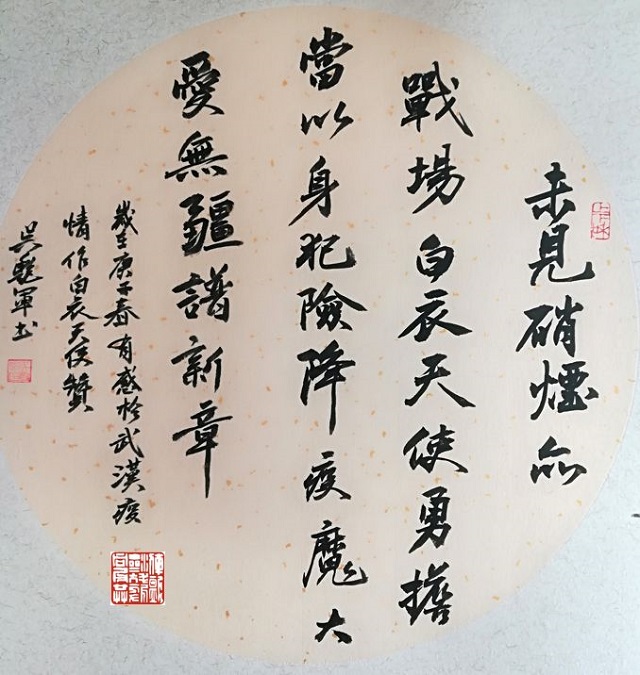 未見硝煙亦
戰場白衣天使勇擔
當以身犯險降疫魔大
愛無疆譜新章
歲在庚子春有感於武漢疫
情作白衣天使贊
吳軍書